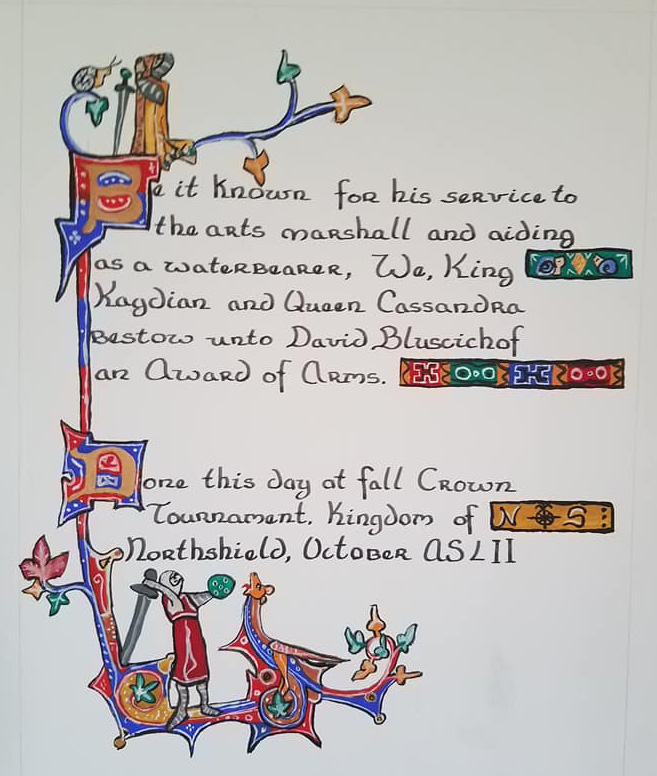 Be it Known for his service to
the arts marshall and aiding
as a waterbearer, We, King
Kagdian and Queen Cassandra
Bestow unto David Bluscichof
an Award of Arms.
Done this day at fall Crown
Tournament. Kingdom of N S
Northshield, October ASLII